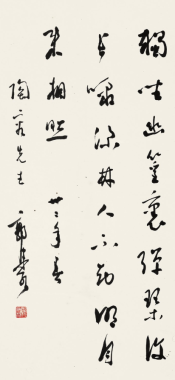 獨坐幽篁裏彈琴復
長嘯深林人不知明月
來相照
陶
先生